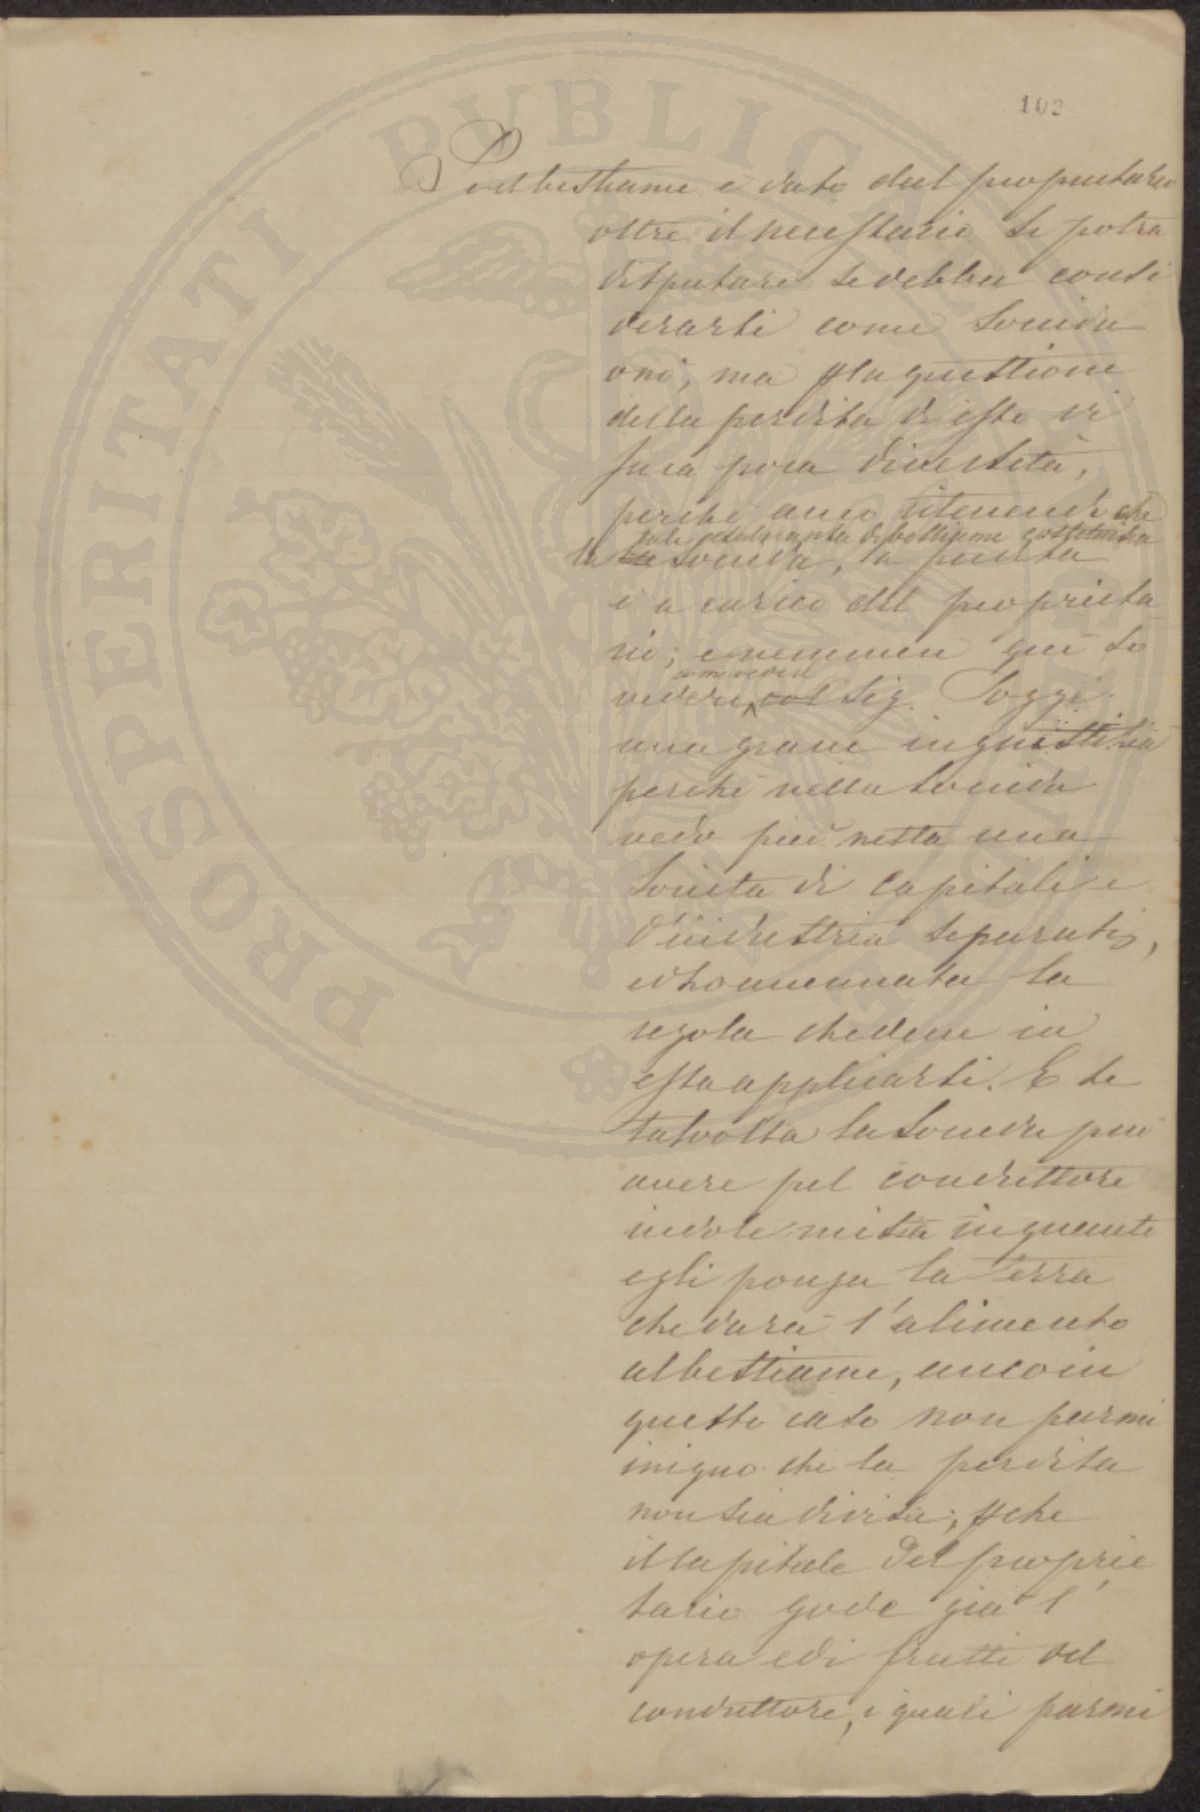 102
Se il bestiame è dato dal proprietario
oltre il necessario si potrà
disputare se debba consi
derarsi come Soccida
o no, ma p la questione
della perdita di esso vi
sarà poca diversità,
perchè anco ritenendo che
tale esuberanza di bestiame costituisca
la Soccida, la perdita
è a carico del proprieta
rio; e nemmen qui so
come vedeva
vedere, col Sig. Poggi
una grave ingiustizia
perchè nella Soccida
vedo più netta una
Società di Capitali e
d'industria separati,
ed ho accennata la
regola che deve in
essa applicarsi. E se
talvolta la Soccida può
avere pel conduttore
indole mista in quanto
egli ponga la terra
che darà l'alimento
al bestiame, anco in
questo caso non parmi
iniquo che la perdita
non sia divisa; pchè
il capitale del proprie
tario gode già l'
opera ed i frutti del
conduttore, i quali parmi
PROSPERITATI PVBLICAE